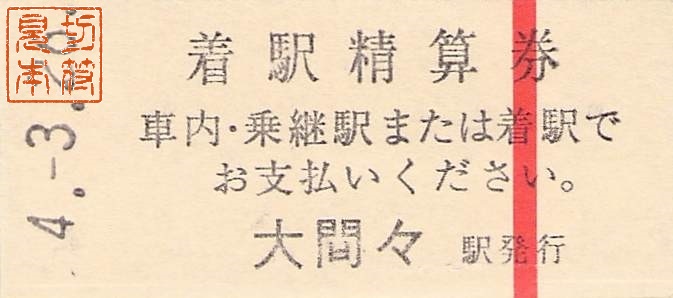 着駅精算券
車内・乗継駅または着駅で
お支払いください。
大間々 駅発行
4.-3.
見本